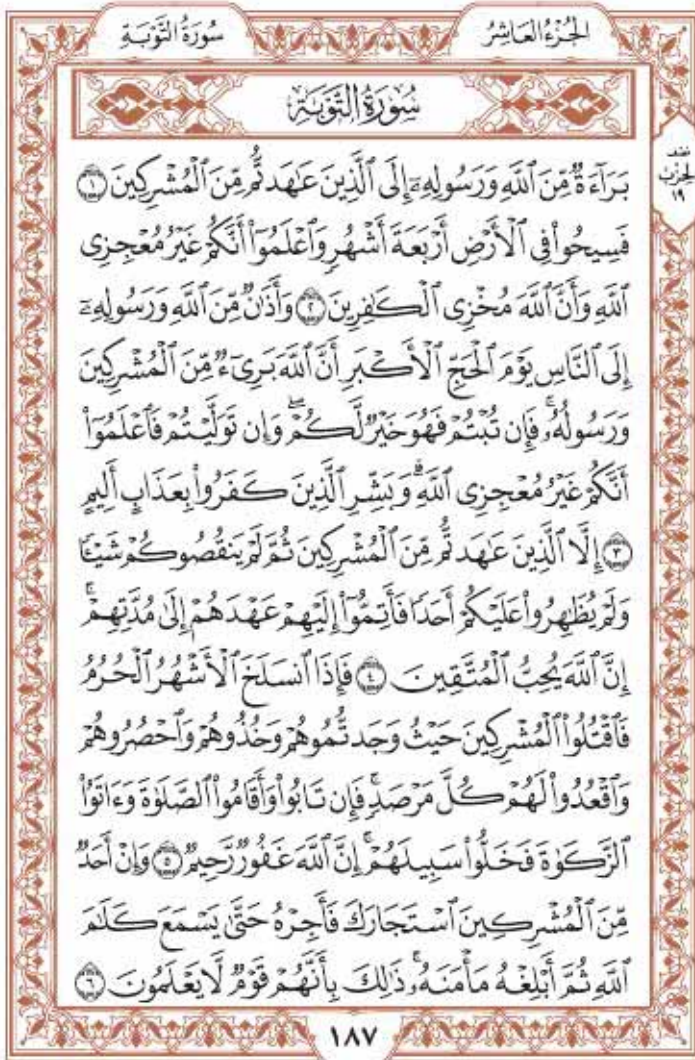 الجُزْءُ العَاشِرُ
سُورَةُ التَّوْبَةِ
سُورَةُ التَّوْبَةِ
بَرَآءَةٌ مِّنَ ٱللَّهِ وَرَسُولِهِۦٓ إِلَى ٱلَّذِينَ عَٰهَدتُّم مِّنَ ٱلْمُشْرِكِينَ ١
فَسِيحُوا۟ فِى ٱلْأَرْضِ أَرْبَعَةَ أَشْهُرٍ وَٱعْلَمُوٓا۟ أَنَّكُمْ غَيْرُ مُعْجِزِى
ٱللَّهِ وَأَنَّ ٱللَّهَ مُخْزِى ٱلْكَٰفِرِينَ ٢ وَأَذَٰنٌ مِّنَ ٱللَّهِ وَرَسُولِهِۦٓ
إِلَى ٱلنَّاسِ يَوْمَ ٱلْحَجِّ ٱلْأَكْبَرِ أَنَّ ٱللَّهَ بَرِىٓءٌ مِّنَ ٱلْمُشْرِكِينَ
وَرَسُولُهُۥ ۚ فَإِن تُبْتُمْ فَهُوَ خَيْرٌ لَّكُمْ ۖ وَإِن تَوَلَّيْتُمْ فَٱعْلَمُوٓا۟
أَنَّكُمْ غَيْرُ مُعْجِزِى ٱللَّهِ ۗ وَبَشِّرِ ٱلَّذِينَ كَفَرُوا۟ بِعَذَابٍ أَلِيمٍ
٣ إِلَّا ٱلَّذِينَ عَٰهَدتُّم مِّنَ ٱلْمُشْرِكِينَ ثُمَّ لَمْ يَنقُصُوكُمْ شَيْـًٔا
وَلَمْ يُظَٰهِرُوا۟ عَلَيْكُمْ أَحَدًا فَأَتِمُّوٓا۟ إِلَيْهِمْ عَهْدَهُمْ إِلَىٰ مُدَّتِهِمْ ۚ
إِنَّ ٱللَّهَ يُحِبُّ ٱلْمُتَّقِينَ ٤ فَإِذَا ٱنسَلَخَ ٱلْأَشْهُرُ ٱلْحُرُمُ
فَٱقْتُلُوا۟ ٱلْمُشْرِكِينَ حَيْثُ وَجَدتُّمُوهُمْ وَخُذُوهُمْ وَٱحْصُرُوهُمْ
وَٱقْعُدُوا۟ لَهُمْ كُلَّ مَرْصَدٍ ۚ فَإِن تَابُوا۟ وَأَقَامُوا۟ ٱلصَّلَوٰةَ وَءَاتَوُا۟
ٱلزَّكَوٰةَ فَخَلُّوا۟ سَبِيلَهُمْ ۚ إِنَّ ٱللَّهَ غَفُورٌ رَّحِيمٌ ٥ وَإِنْ أَحَدٌ
مِّنَ ٱلْمُشْرِكِينَ ٱسْتَجَارَكَ فَأَجِرْهُ حَتَّىٰ يَسْمَعَ كَلَٰمَ
ٱللَّهِ ثُمَّ أَبْلِغْهُ مَأْمَنَهُۥ ۚ ذَٰلِكَ بِأَنَّهُمْ قَوْمٌ لَّا يَعْلَمُونَ ٦
الحِزْب
١٩
١٨٧